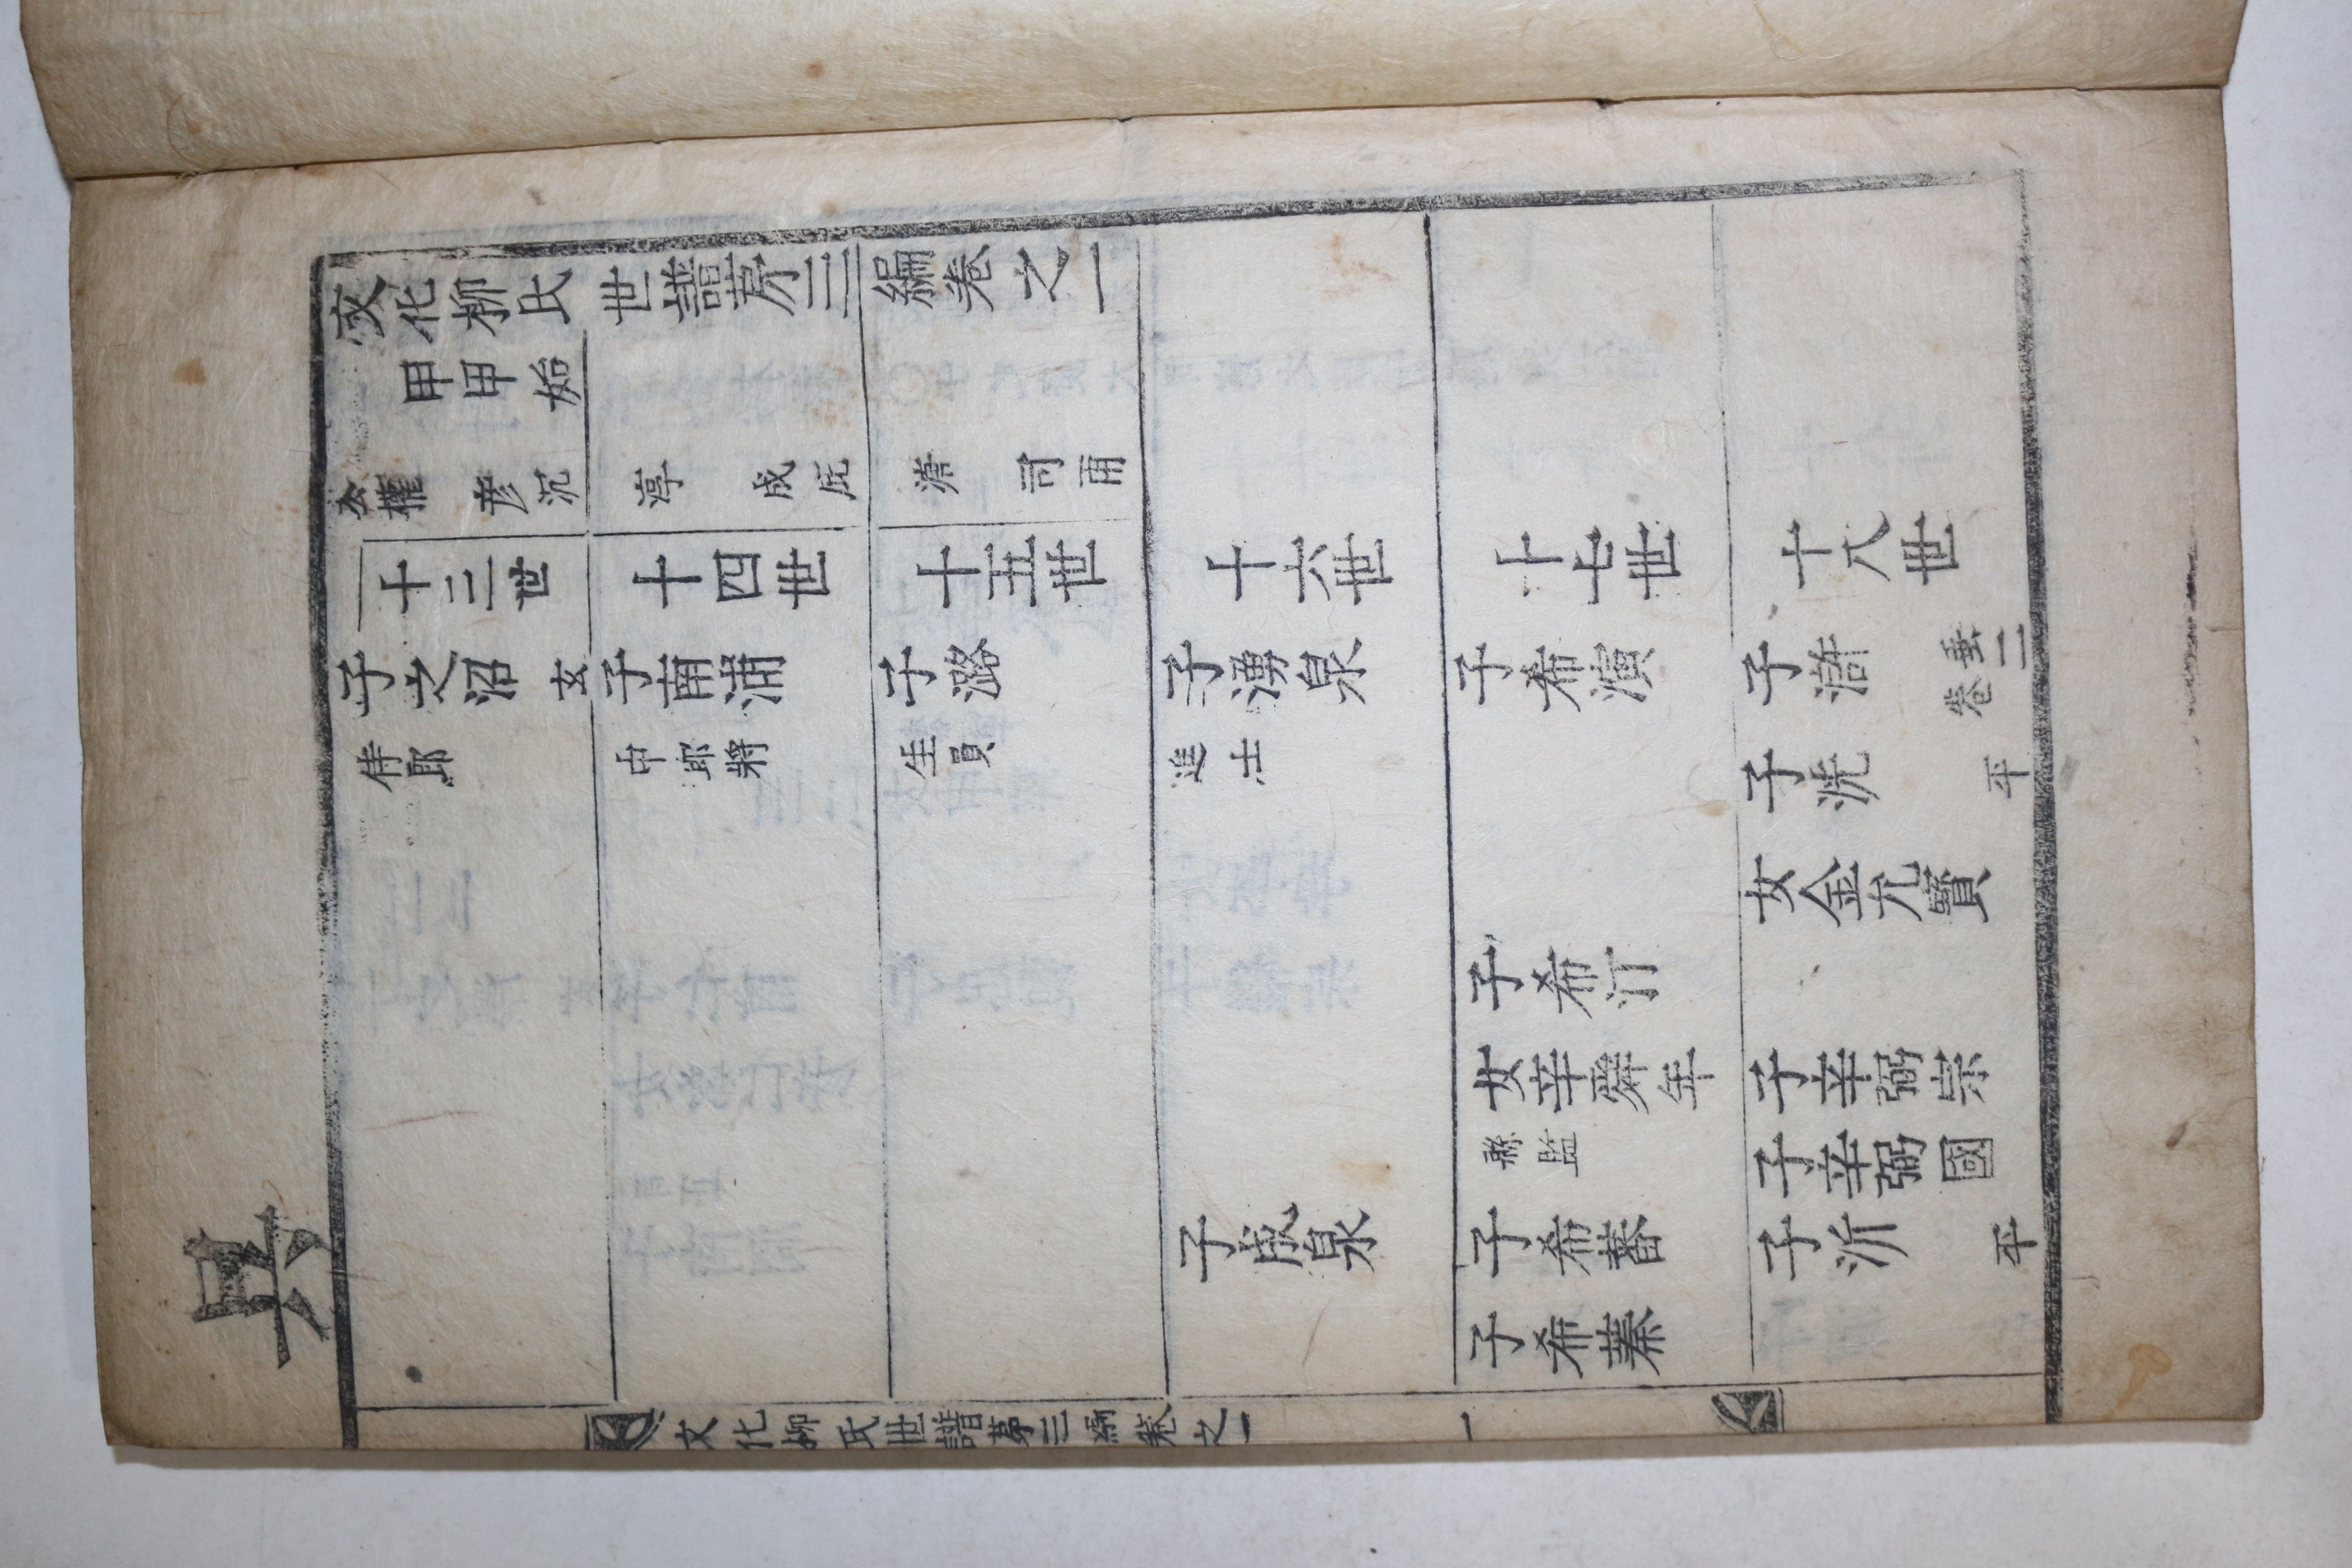 文化柳氏世譜第三編卷之一
甲甲始
公權 彦沉 淳 成庇 濟
十三世 十四世 十五世 十六世 十七世 十八世
子之沼 玄 子南浦 子潞 子湧泉 子希演 子滸 卷垂二
侍郎 中郎將 生員 進士 子洸 平
女金允寶
子希汀
女辛舜年 子辛弼崇
縣監 子辛弼國
子成泉 子希蕃 子沂 平
子希蓁
文化柳氏世譜第三編卷之一 一